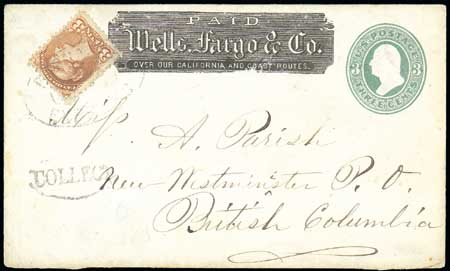 PAID
Wells, Fargo & Co.
OVER OUR CALIFORNIA AND COAST ROUTES.
U.S. POSTAGE
3 3
THREE CENTS
Miss A. Parish
COLLECT
New Westminster P. O.
British Columbia